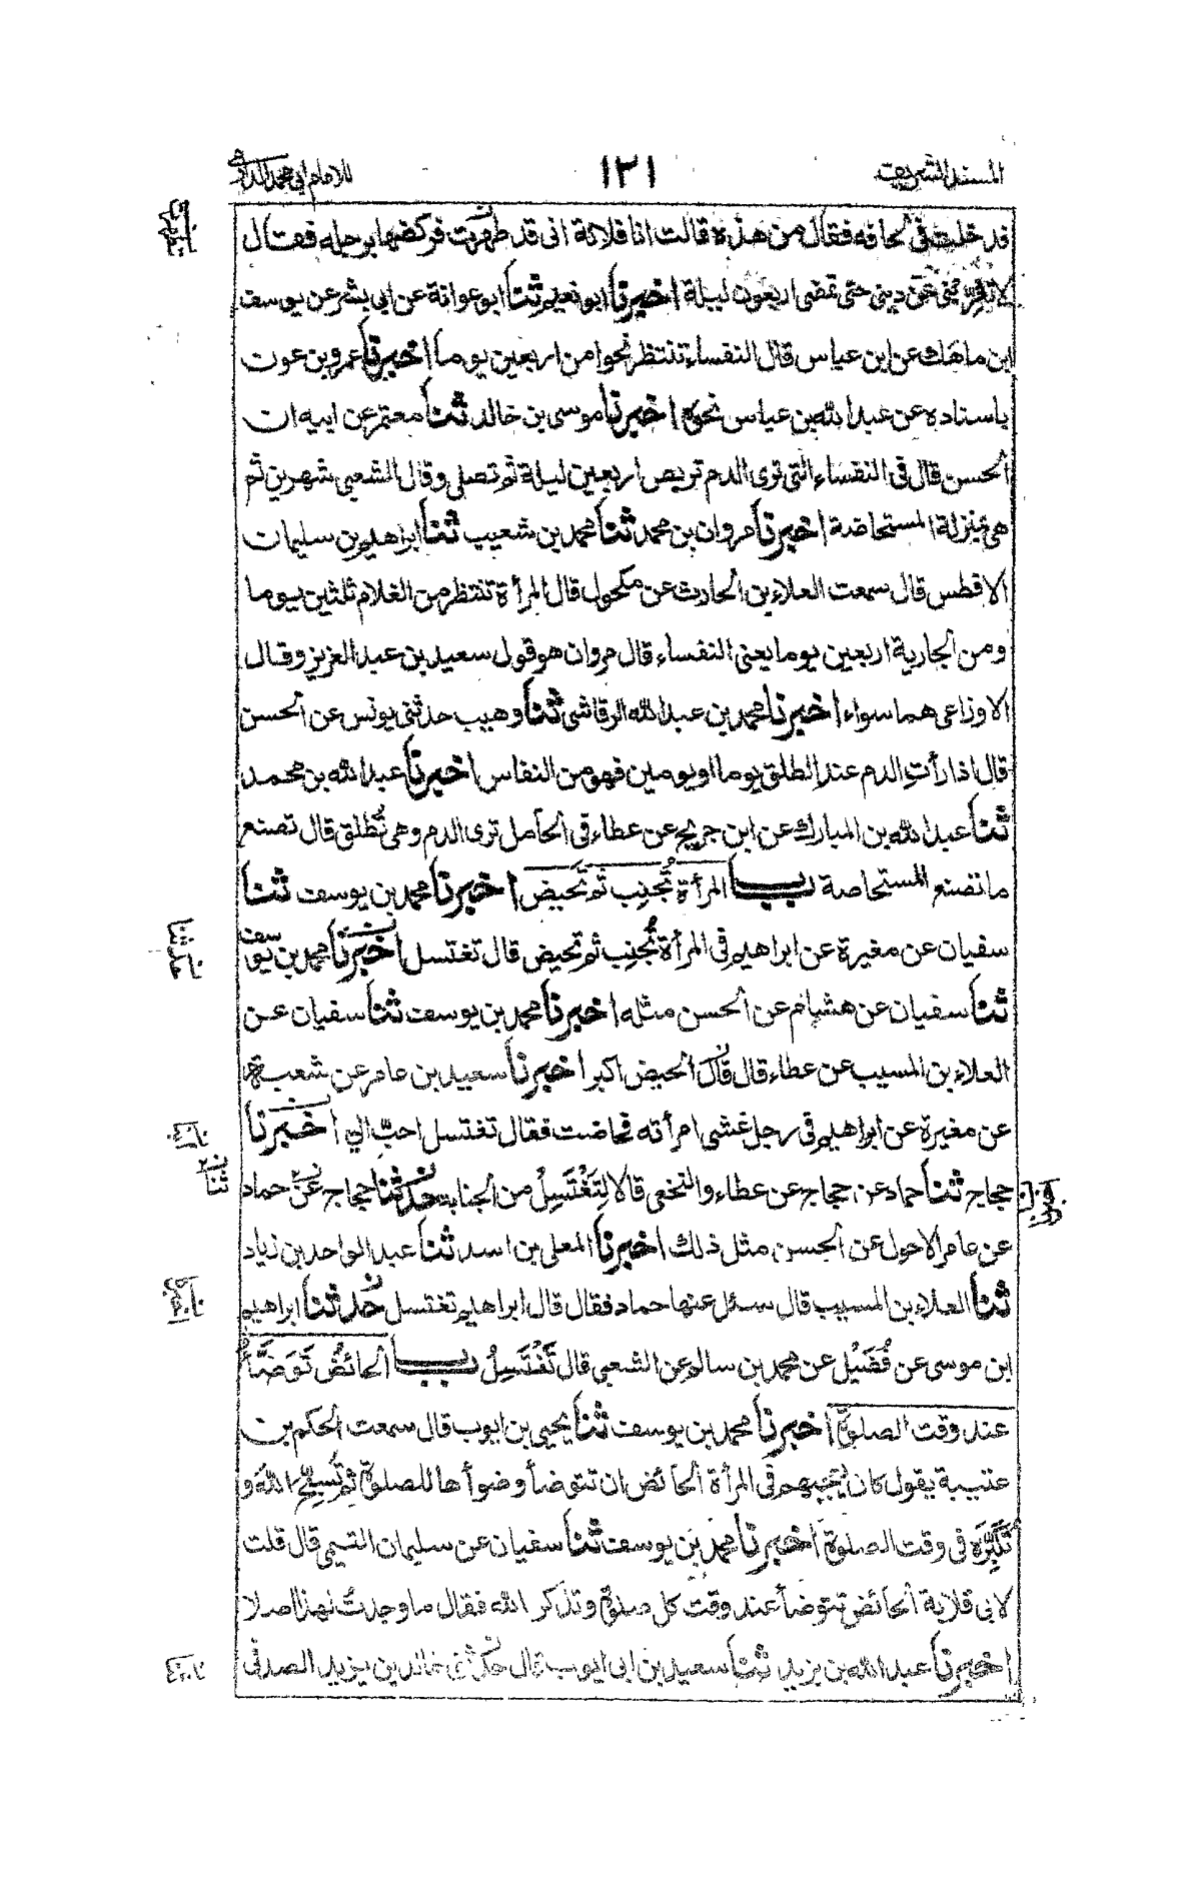 المسند الشريف
١٢١
للامام ابي محمد الدارمي
فدخلت في لحافه فقال من هذه قالت انا فلانة اني قد طهرت فركضها برجله فقال
لا تغرني عن ديني حتى تمضي اربعون ليلة اخبرنا ابو نعيم ثنا ابو عوانة عن ابي بشر عن يوسف
ابن ماهك عن ابن عباس قال النفساء تنتظر نحوا من اربعين يوما اخبرنا عمرو بن عون
باسناده عن عبد الله بن عباس نحوه اخبرنا موسى بن خالد ثنا معتمر عن ابيه ان
الحسن قال في النفساء التي ترى الدم تربص اربعين ليلة ثم تصلي وقال الشعبي شهرين ثم
هي بمنزلة المستحاضة اخبرنا مروان بن محمد ثنا محمد بن شعيب ثنا ابراهيم بن سليمان
الافطس قال سمعت العلاء بن الحارث عن مكحول قال المرأة تنتظر من الغلام ثلثين يوما
ومن الجارية اربعين يوما يعني النفساء قال مروان هو قول سعيد بن عبد العزيز وقال
الاوزاعي هما سواء اخبرنا محمد بن عبد الله الرقاشي ثنا وهيب حدثني يونس عن الحسن
قال اذا رأت الدم عند الطلق يوما او يومين فهو من النفاس اخبرنا عبد الله بن محمد
ثنا عبد الله بن المبارك عن ابن جريج عن عطاء في الحامل ترى الدم وهي تُطلق قال تصنع
ما تصنع المستحاضة باب المرأة تُجنِب ثم تحيض اخبرنا محمد بن يوسف ثنا
سفيان عن مغيرة عن ابراهيم في المرأة تُجنِب ثم تحيض قال تغتسل اخبرنا محمد بن يوسف
ثنا سفيان عن هشام عن الحسن مثله اخبرنا محمد بن يوسف ثنا سفيان عن
العلاء بن المسيب عن عطاء قال قال الحيض اكبر اخبرنا سعيد بن عامر عن شعبة
عن مغيرة عن ابراهيم في رجل غشي امرأته فحاضت فقال تغتسل احبّ الي اخبرنا
حجاج ثنا حماد عن حجاج عن عطاء والنخعي قالا لِتَغْتَسِلْ من الجنابة حدثنا حجاج عن حماد
عن عامر الاحول عن الحسن مثل ذلك اخبرنا المعلى بن اسد ثنا عبد الواحد بن زياد
ثنا العلاء بن المسيب قال سئل عنها حماد فقال قال ابراهيم تغتسل حدثنا ابراهيم
ابن موسى عن فُضَيْل عن محمد بن سالم عن الشعبي قال تَغْتَسِلُ باب الحائض تَوَضَّأُ
عند وقت الصلوة اخبرنا محمد بن يوسف ثنا يحيى بن ايوب قال سمعت الحكم بن
عتيبة يقول كان يُعجبهم في المرأة الحائض ان تتوضأ وضوأها للصلوة ثم تُسبّح الله و
تُكَبِّرَه في وقت الصلوة اخبرنا محمد بن يوسف ثنا سفيان عن سليمان التيمي قال قلت
لابي قلابة الحائض تتوضأ عند وقت كل صلوة وتذكر الله فقال ما وجدتُ لهذا اصلا
اخبرنا عبد الله بن يزيد ثنا سعيد بن ابي ايوب قال حدثني خالد بن يزيد الصدفي